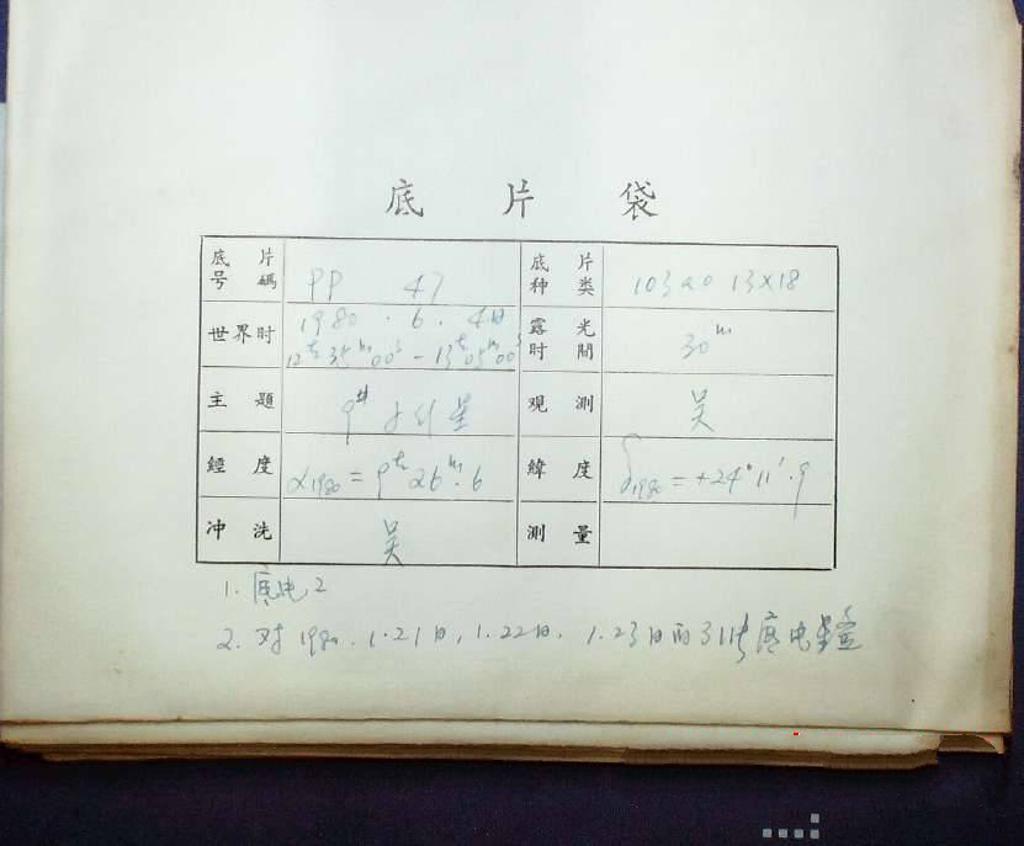 底片袋
底片号碼 PP 47 底片种类 103aO 13×18
世界时 1980.6.4日 12h35m00s-13h05m00s 露光时間 30m
主題 9# 观測 吴
經度 α1980=9h26m.6 緯度 δ1980=+24°11′.9
冲洗 吴 測量
1. 底片2
2. 对1980.1.21日,1.22日,1.23日的311号底片